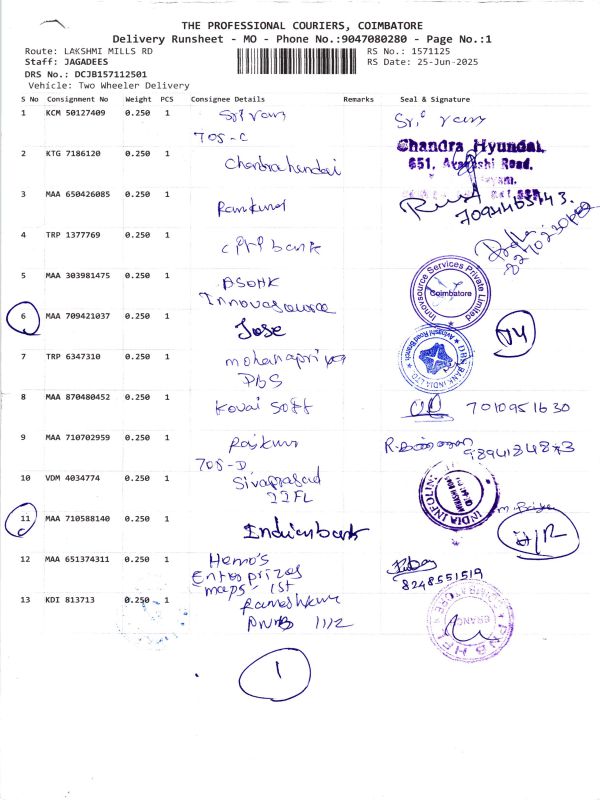 THE PROFESSIONAL COURIERS, COIMBATORE
Delivery Runsheet - MO - Phone No.:9047080280 - Page No.:1
Route: LAKSHMI MILLS RD
RS No.: 1571125
Staff: JAGADEES
RS Date: 25-Jun-2025
DRS No.: DCJB157112501
Vehicle: Two Wheeler Delivery
S No Consignment No Weight PCS Consignee Details Remarks Seal & Signature
1 KCM 50127409 0.250 1 Sri ram
705-C
2 KTG 7186120 0.250 1 Chandra hundai
Chandra Hyundai,
651, Avanashi Road,
3 MAA 650426085 0.250 1 Ramkumar
7094463143.
4 TRP 1377769 0.250 1 bank
5 MAA 303981475 0.250 1 ASOHK
Innovasource
Innovsource Services Private Limited
Coimbatore
6 MAA 709421037 0.250 1 Jose
7 TRP 6347310 0.250 1 mohanapriya
DBS
DBS BANK INDIA LTD
Avinashi Road Branch
8 MAA 870480452 0.250 1 Kovai soft
7010951630
9 MAA 710702959 0.250 1 Rajkumar
705-D
10 VDM 4034774 0.250 1 Sivaprasad
IIFL
INDIA INFOLINE
11 MAA 710588140 0.250 1 Indian bank
M. Priya
12 MAA 651374311 0.250 1 Hemo's
Enterprizes
maps-1st
8248551519
13 KDI 813713 0.250 1 Rameshkumar
PNB 1112
PNBHFL
1